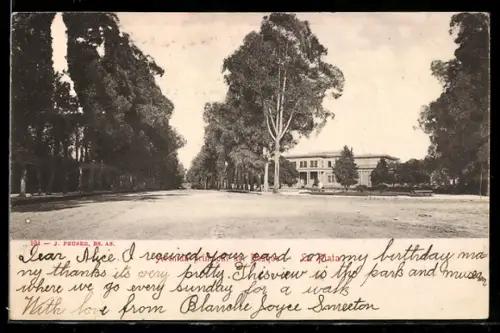 104 - J. PEUSER, BS. AS.
La Plata
Dear, Alice I received your card on my birthday ma
ny thanks its very pretty. This view is the park and museum
where we go every sunday for a walk
With love from Blanche Joyce Smeeton